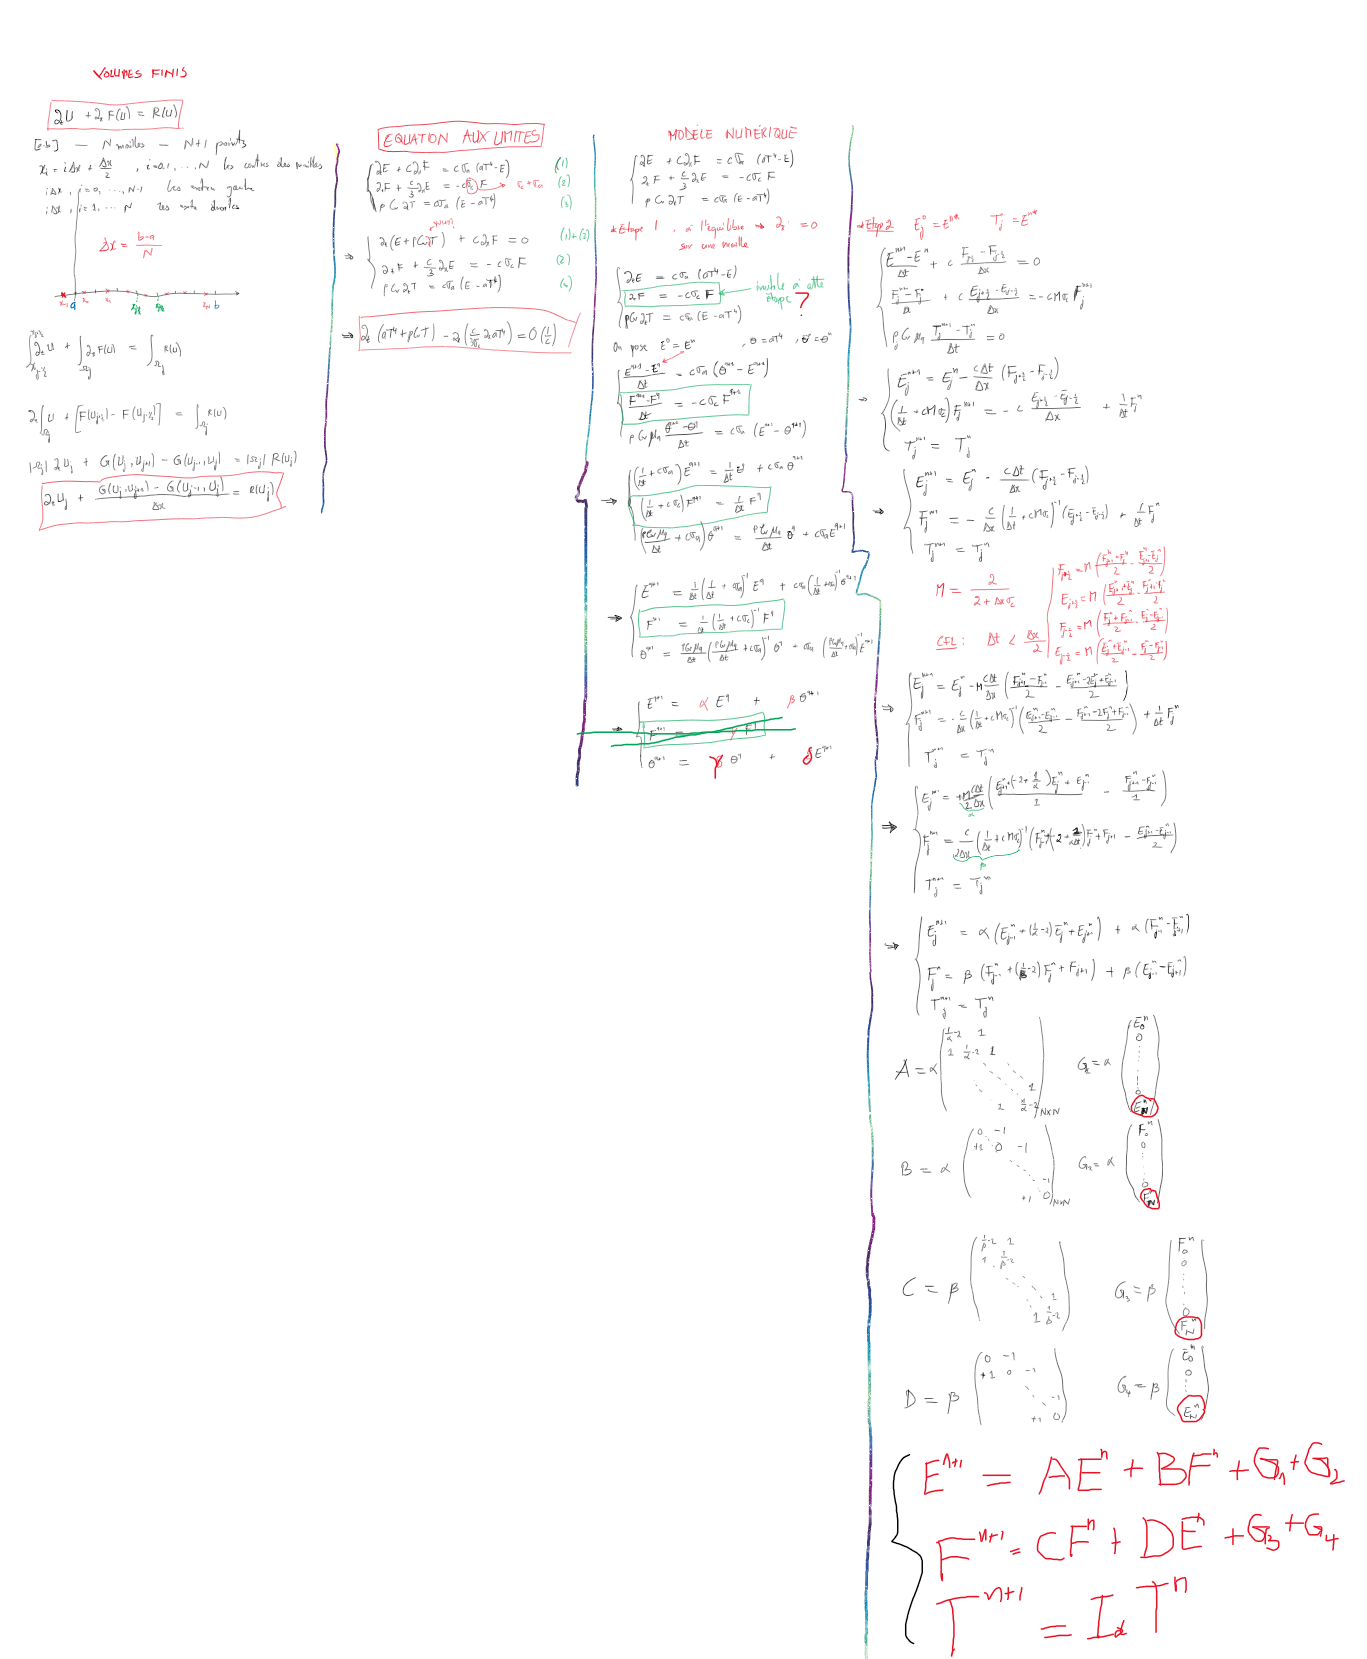 VOLUMES FINIS
∂ₜU + ∂ₓF(U) = R(U)
[a.b] — N mailles — N+1 points
xᵢ = iΔx + Δx/2 , i=0,1,...,N les centres des mailles
iΔx , i=0, ..., N-1 les extrem gauche
iΔx , i=1, ... N les extre droites
Δx = (b-a)/N
a b
∫ ∂ₜU + ∫ ∂ₓF(U) = ∫ R(U)
∂ₜ∫U + [F(Uj+½) - F(Uj-½)] = ∫ R(U)
|Ωj| ∂ₜUj + G(Uj, Uj+1) - G(Uj-1, Uj) = |Ωj| R(Uj)
∂ₜUj + (G(Uj,Uj+1) - G(Uj-1,Uj))/Δx = R(Uj)
EQUATION AUX LIMITES
∂ₜE + c∂ₓF = cσₐ (aT⁴-E) (1)
∂ₜF + c/3 ∂ₓE = -cσc F (2)
ρCv ∂ₜT = cσₐ (E-aT⁴) (3)
⇒ ∂ₜ(E+ρCvT) + c∂ₓF = 0 (1)+(3)
∂ₜF + c/3 ∂ₓE = -cσc F (2)
ρCv ∂ₜT = cσₐ (E-aT⁴)
⇒ ∂ₜ(aT⁴+ρCvT) - ∂ₓ(c/3σc ∂ₓaT⁴) = O(1/c)
MODÈLE NUMÉRIQUE
∂ₜE + c∂ₓF = cσₐ (aT⁴-E)
∂ₜF + c/3 ∂ₓE = -cσc F
ρCv ∂ₜT = cσₐ (E-aT⁴)
* Etape 1, à l'équilibre ⇒ ∂ₓ = 0
sur une maille
∂ₜE = cσₐ (aT⁴-E)
∂ₜF = -cσc F ← inutile à cette étape ?
ρCv ∂ₜT = cσₐ (E-aT⁴)
On pose E⁰ = Eⁿ , Θ=aT⁴ , Θ⁰=Θⁿ
(E^q+1 - E^q)/Δt = cσₐ (Θ^q+1 - E^q+1)
(F^q+1 - F^q)/Δt = -cσc F^q+1
ρCv μq (Θ^q+1 - Θ^q)/Δt = cσₐ (E^q+1 - Θ^q+1)
⇒ (1/Δt + cσₐ) E^q+1 = 1/Δt E^q + cσₐ Θ^q+1
(1/Δt + cσc) F^q+1 = 1/Δt F^q
(ρCvμq/Δt + cσₐ) Θ^q+1 = ρCvμq/Δt Θ^q + cσₐ E^q+1
⇒ E^q+1 = 1/Δt (1/Δt + σₐ)⁻¹ E^q + cσₐ (1/Δt + σₐ)⁻¹ Θ^q+1
F^q+1 = 1/Δt (1/Δt + cσc)⁻¹ F^q
Θ^q+1 = ρCvμq/Δt (ρCvμq/Δt + cσₐ)⁻¹ Θ^q + σₐ (ρCvμq/Δt + σₐ)⁻¹ E^q+1
⇒ E^q+1 = α E^q + β Θ^q+1
F^q+1 = F^q
Θ^q+1 = γ Θ^q + δ E^q+1
* Etape 2 Ej⁰ = Eⁿ* Tj = Eⁿ*
(Eⁿ⁺¹ - Eⁿ)/Δt + c (Fj+½ - Fj-½)/Δx = 0
(Fjⁿ⁺¹ - Fjⁿ)/Δt + c (Ej+½ - Ej-½)/Δx = -cMσc Fjⁿ⁺¹
ρCvμq (Tjⁿ⁺¹ - Tjⁿ)/Δt = 0
Ejⁿ⁺¹ = Ejⁿ - cΔt/Δx (Fj+½ - Fj-½)
(1/Δt + cMσc) Fjⁿ⁺¹ = -c (Ej+½ - Ej-½)/Δx + 1/Δt Fjⁿ
Tjⁿ⁺¹ = Tjⁿ
⇒ Ejⁿ⁺¹ = Ejⁿ - cΔt/Δx (Fj+½ - Fj-½)
Fjⁿ⁺¹ = -c/Δx (1/Δt + cMσc)⁻¹ (Ej+½ - Ej-½) + 1/Δt Fjⁿ
Tjⁿ⁺¹ = Tjⁿ
M = 2/(2+Δxσc)
CFL : Δt < Δx/2
⇒ Ejⁿ⁺¹ = Ejⁿ - M cΔt/Δx ((Fj+1ⁿ - Fj-1ⁿ)/2 - (Ej+1ⁿ - 2Ejⁿ + Ej-1ⁿ)/2)
Fjⁿ⁺¹ = -c/Δx (1/Δt + cMσc)⁻¹ ((Ej+1ⁿ - Ej-1ⁿ)/2 - (Fj+1ⁿ - 2Fjⁿ + Fj-1ⁿ)/2) + 1/Δt Fjⁿ
Tjⁿ⁺¹ = Tjⁿ
⇒ Tjⁿ⁺¹ = Tjⁿ
⇒ Ejⁿ⁺¹ = α (Ej-1ⁿ + (1/α-2) Ejⁿ + Ej+1ⁿ) + α (Fj-1ⁿ - Fj+1ⁿ)
Fjⁿ = β (Fj-1ⁿ + (1/β-2) Fjⁿ + Fj+1) + β (Ej-1ⁿ - Ej+1ⁿ)
Tjⁿ⁺¹ = Tjⁿ
A = α ( 1/α-2 1 1 1/α-2 1 1 1 1/α-2 ) N×N G₁ = α ( E₀ⁿ 0 0 E_Nⁿ )
B = α ( 0 -1 +1 0 -1 -1 +1 0 ) N×N G₂ = α ( F₀ⁿ 0 0 F_Nⁿ )
C = β ( 1/β-2 1 1 1/β-2 1 1 1/β-2 ) G₃ = β ( F₀ⁿ 0 0 F_Nⁿ )
D = β ( 0 -1 +1 0 -1 -1 +1 0 ) G₄ = β ( E₀ⁿ 0 E_Nⁿ )
Eⁿ⁺¹ = AEⁿ + BFⁿ + G₁ + G₂
Fⁿ⁺¹ = CFⁿ + DEⁿ + G₃ + G₄
Tⁿ⁺¹ = I_d Tⁿ